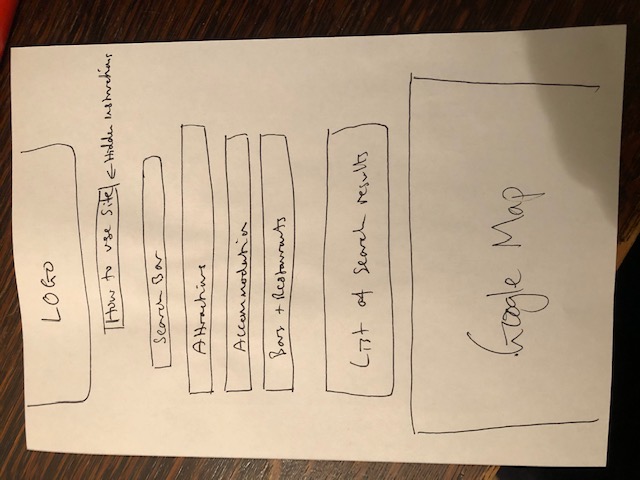 LOGO
How to use Site ← Hidden Instructions
Search Bar
Attractions
Accommodation
Bars + Restaurants
List of Search results
Google Map